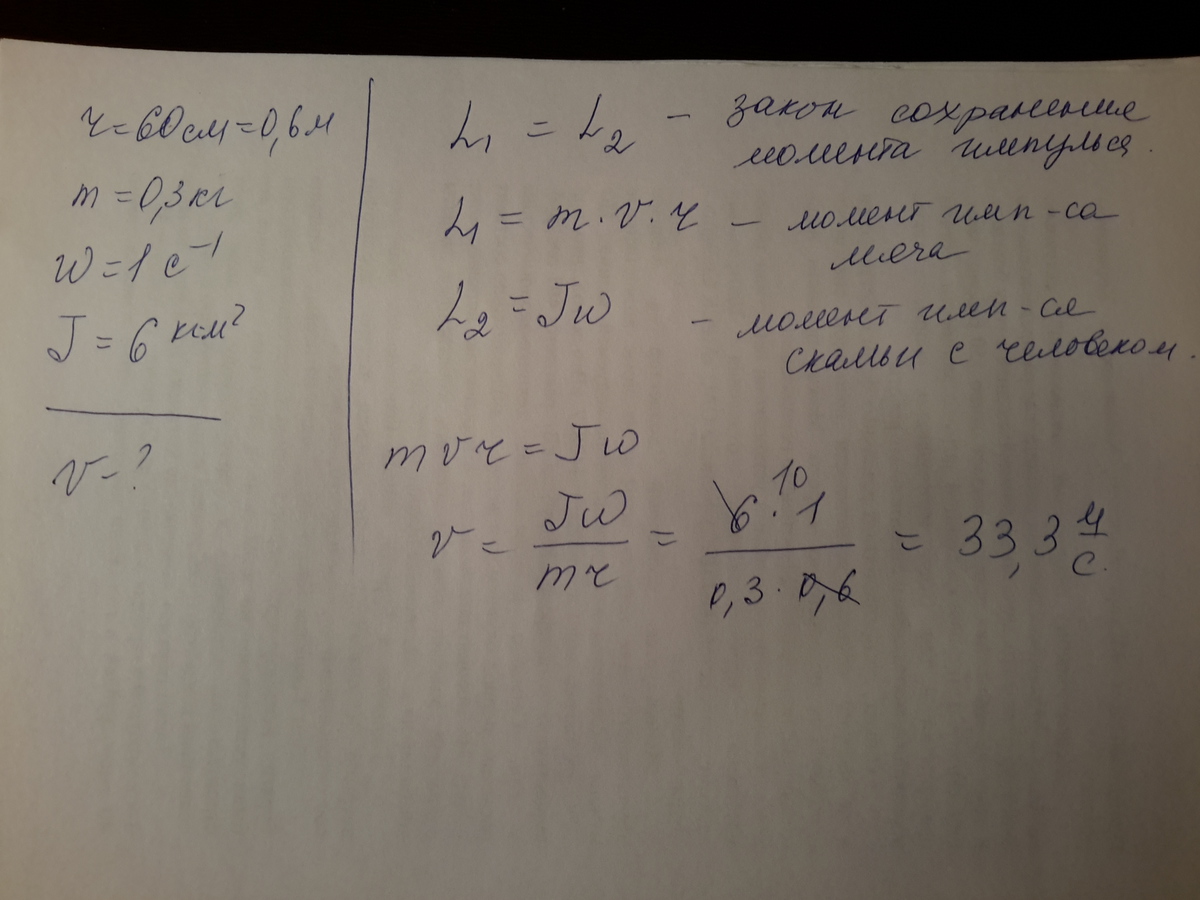 r=60см=0,6м
m=0,3кг
ω=1 с⁻¹
J=6 кг·м²
v-?
L₁ = L₂ - закон сохранения
момента импульса.
L₁ = m·v·r - момент имп-са
мяча
L₂ = Jω - момент имп-са
скамьи с человеком.
mvr = Jω
v = Jω/mr = 6·1/0,3·0,6 = 33,3 м/с.
10